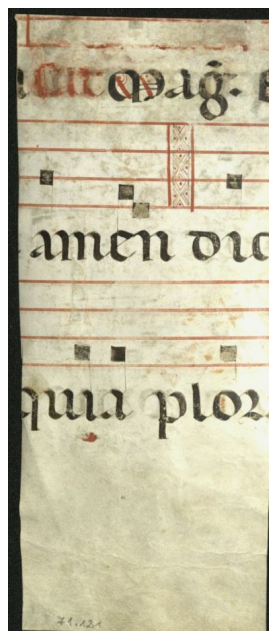 ad Mag̃.
amen dic
quia plor
71.121